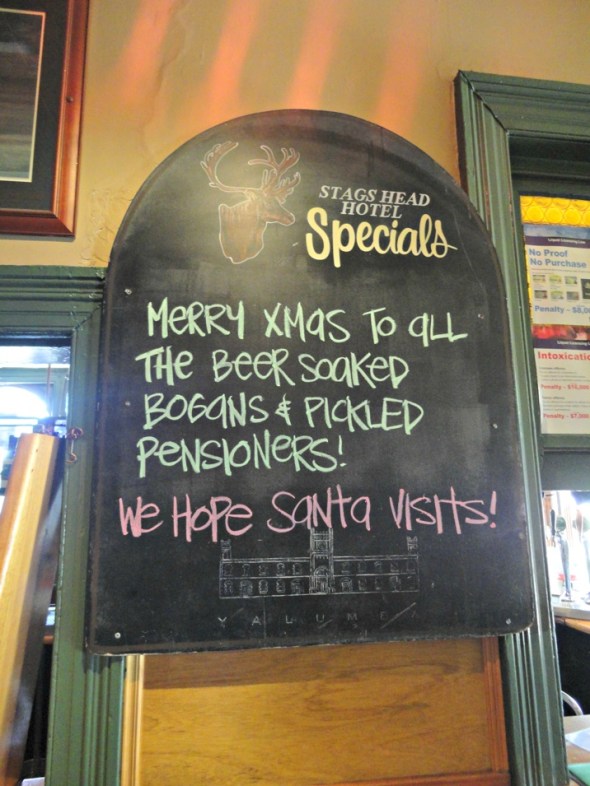 STAGS HEAD
HOTEL
Specials
MERRY XMAS TO ALL
THE BEER SOAKED
BOGANS & PICKLED
PENSIONERS!
WE HOPE SANTA VISITS!
YALUMBA
No Proof
No Purchase
Intoxicatio